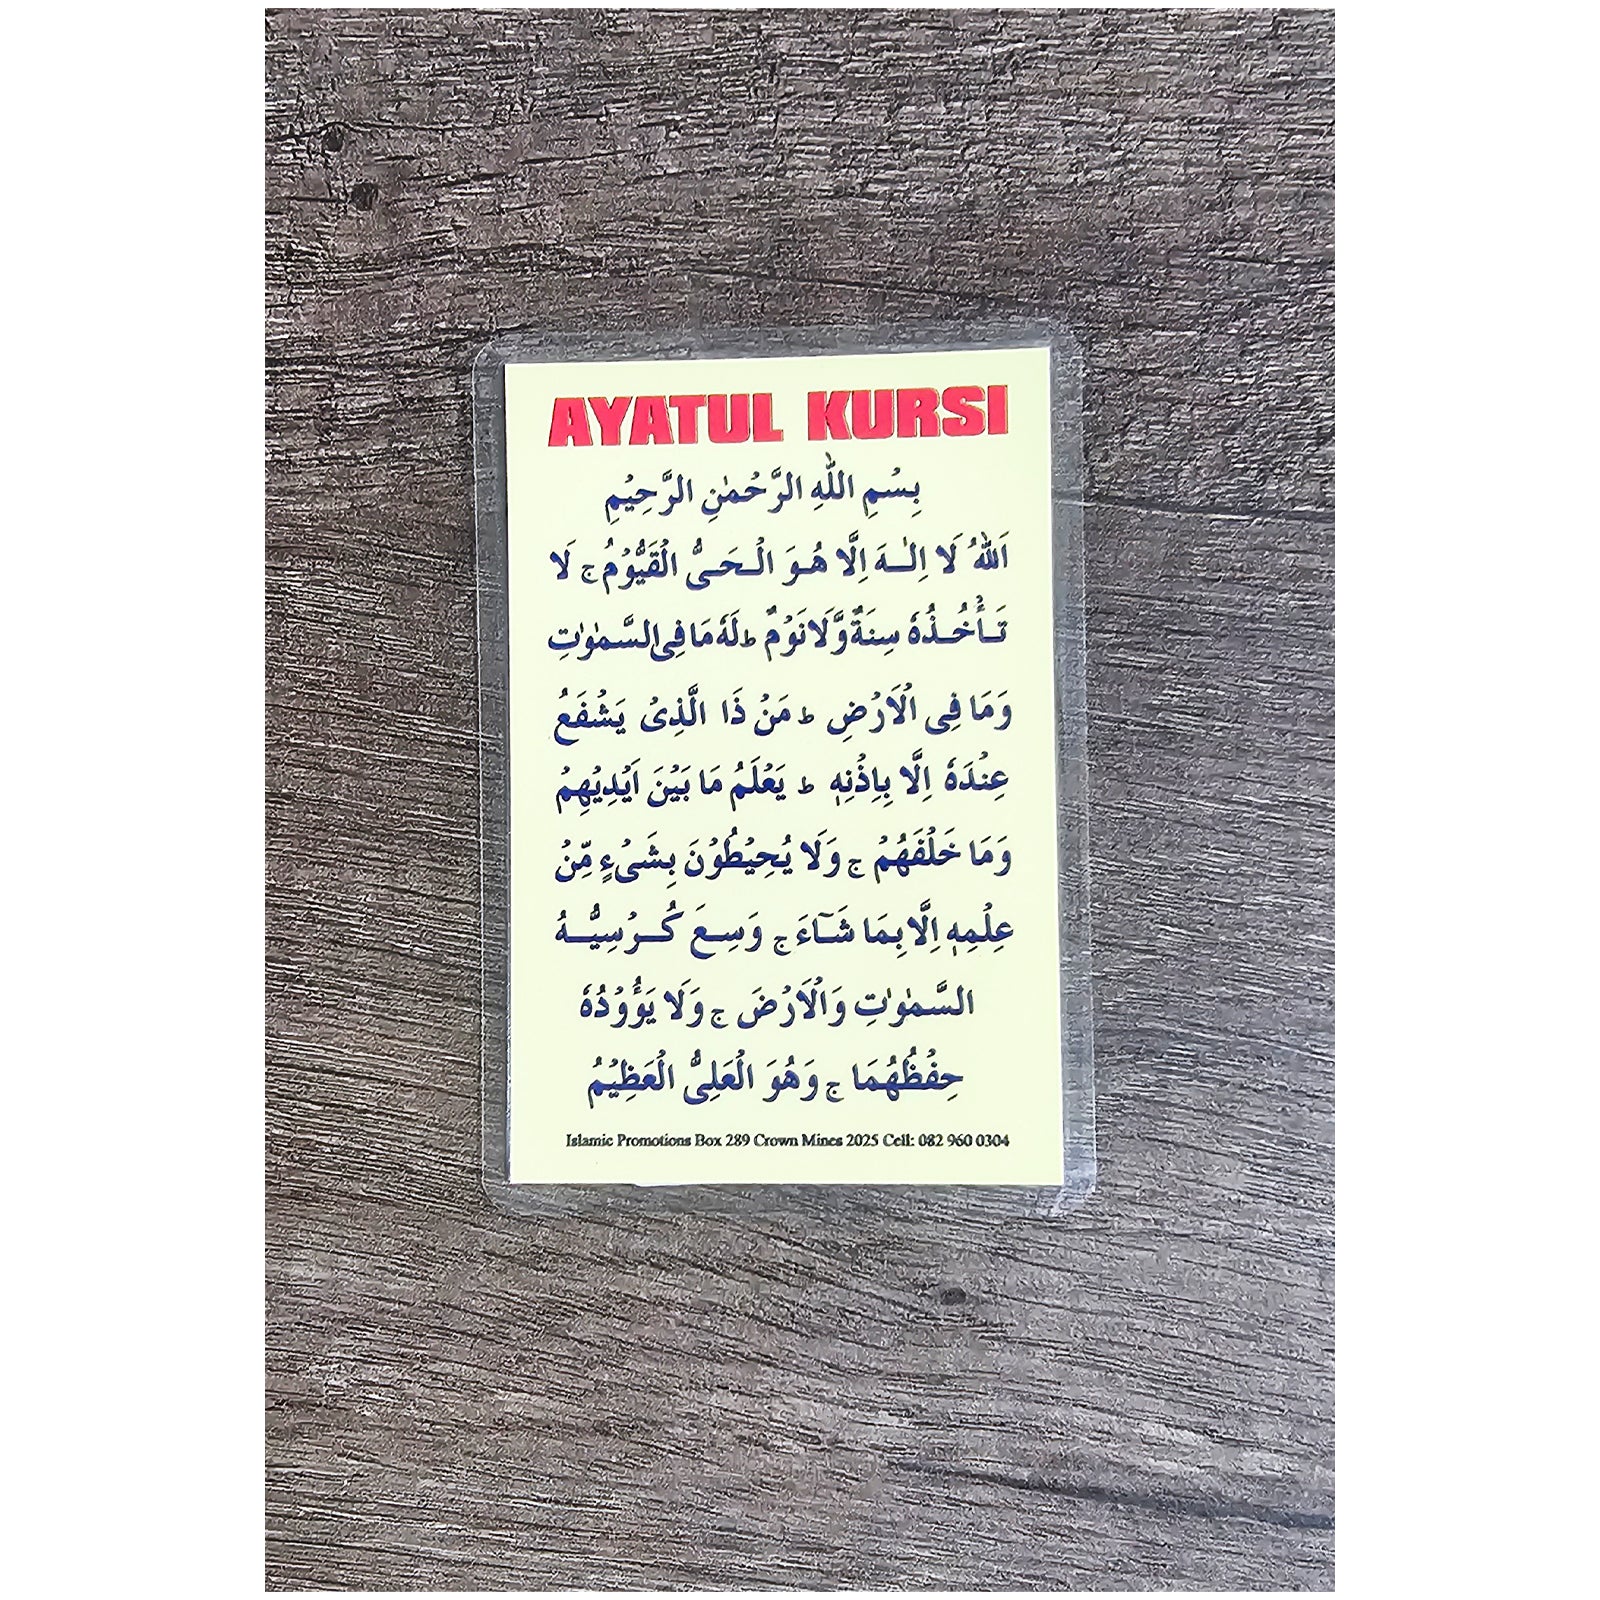 AYATUL KURSI
بِسْمِ اللّٰهِ الرَّحْمٰنِ الرَّحِيْمِ
اَللّٰهُ لَا اِلٰـهَ اِلَّا هُـوَ الْـحَـىُّ الْقَيُّوْمُ ج لَا
تَـاْخُـذُهٗ سِنَةٌ وَّلَا نَوْمٌ ط لَهٗ مَا فِى السَّمٰوٰتِ
وَمَا فِى الْاَرْضِ ط مَنْ ذَا الَّذِىْ يَشْفَعُ
عِنْدَهٗ اِلَّا بِاِذْنِهٖ ط يَعْلَمُ مَا بَيْنَ اَيْدِيْهِمْ
وَمَا خَلْفَهُمْ ج وَلَا يُحِيْطُوْنَ بِشَىْءٍ مِّنْ
عِلْمِهٖ اِلَّا بِمَا شَآءَ ج وَسِـعَ كُـرْسِيُّـهُ
السَّمٰوٰتِ وَالْاَرْضَ ج وَلَا يَؤُوْدُهٗ
حِفْظُهُمَا ج وَهُوَ الْعَلِىُّ الْعَظِيْمُ
Islamic Promotions Box 289 Crown Mines 2025 Cell: 082 960 0304